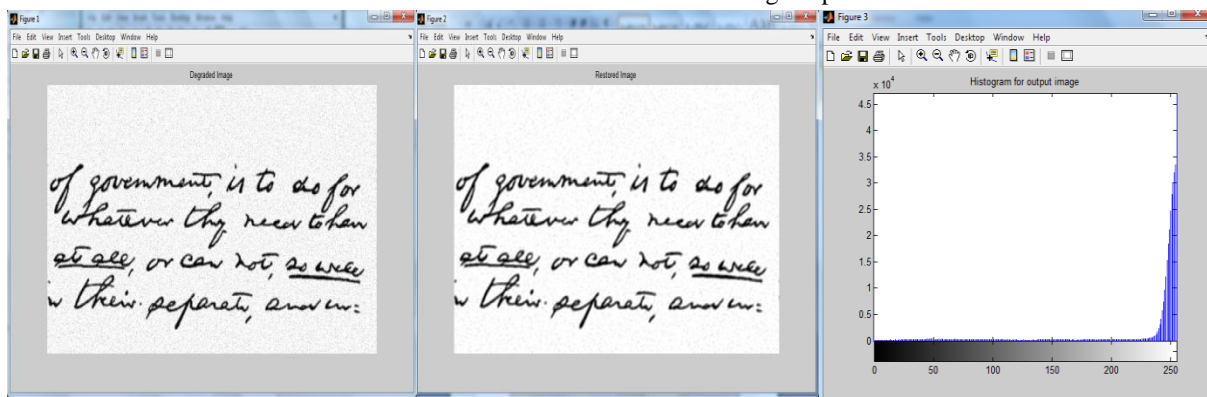 Figure 1
File Edit View Insert Tools Desktop Window Help
Degraded Image
of government, is to do for
whatever thy need to hav
at all, or can not, so well
in their separate, and in:
Figure 2
File Edit View Insert Tools Desktop Window Help
Restored Image
of government, is to do for
whatever thy need to hav
at all, or can not, so well
in their separate, and in:
Figure 3
File Edit View Insert Tools Desktop Window Help
Histogram for output image
x 10^4
4.5
4
3.5
3
2.5
2
1.5
1
0.5
0
0 50 100 150 200 250